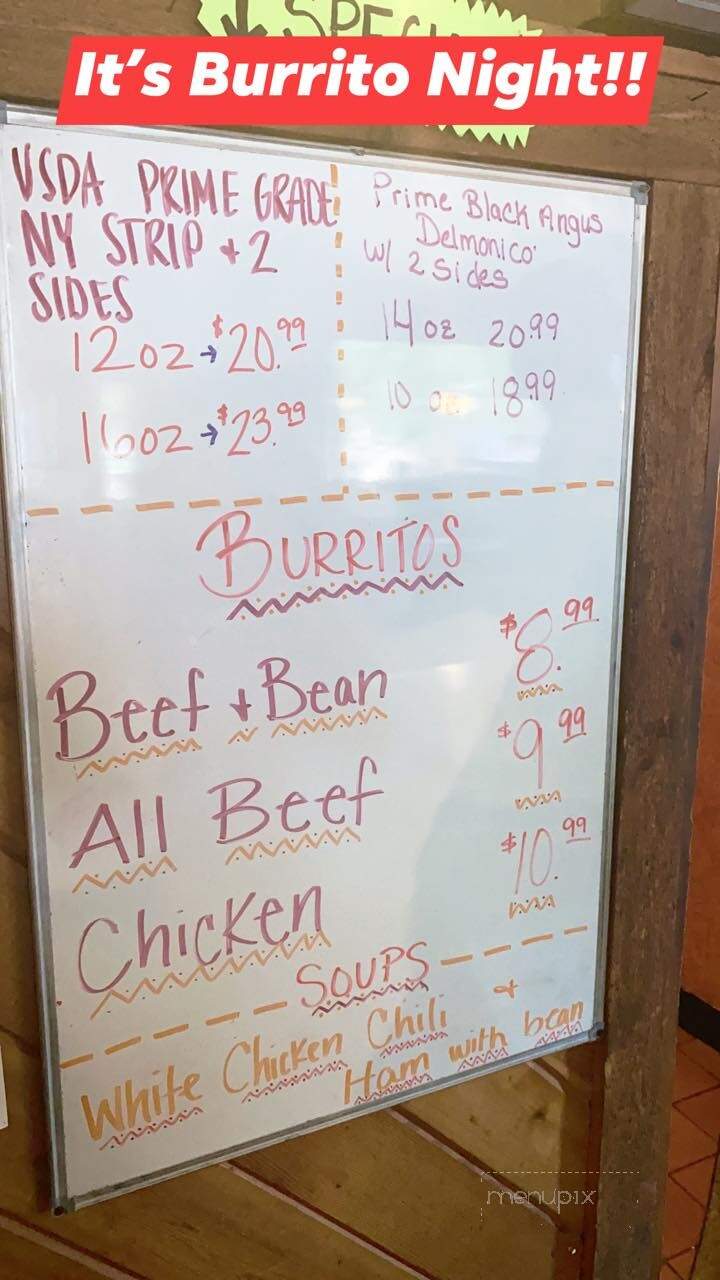 SPECI
It's Burrito Night!!
USDA PRIME GRADE
NY STRIP + 2
SIDES
12oz → $20.99
16oz → $23.99
Prime Black Angus
Delmonico
w/ 2 Sides
14 oz 20.99
10 oz 18.99
BURRITOS
Beef + Bean $8.99
All Beef $9.99
Chicken $10.99
SOUPS
White Chicken Chili +
Ham with bean
menupix